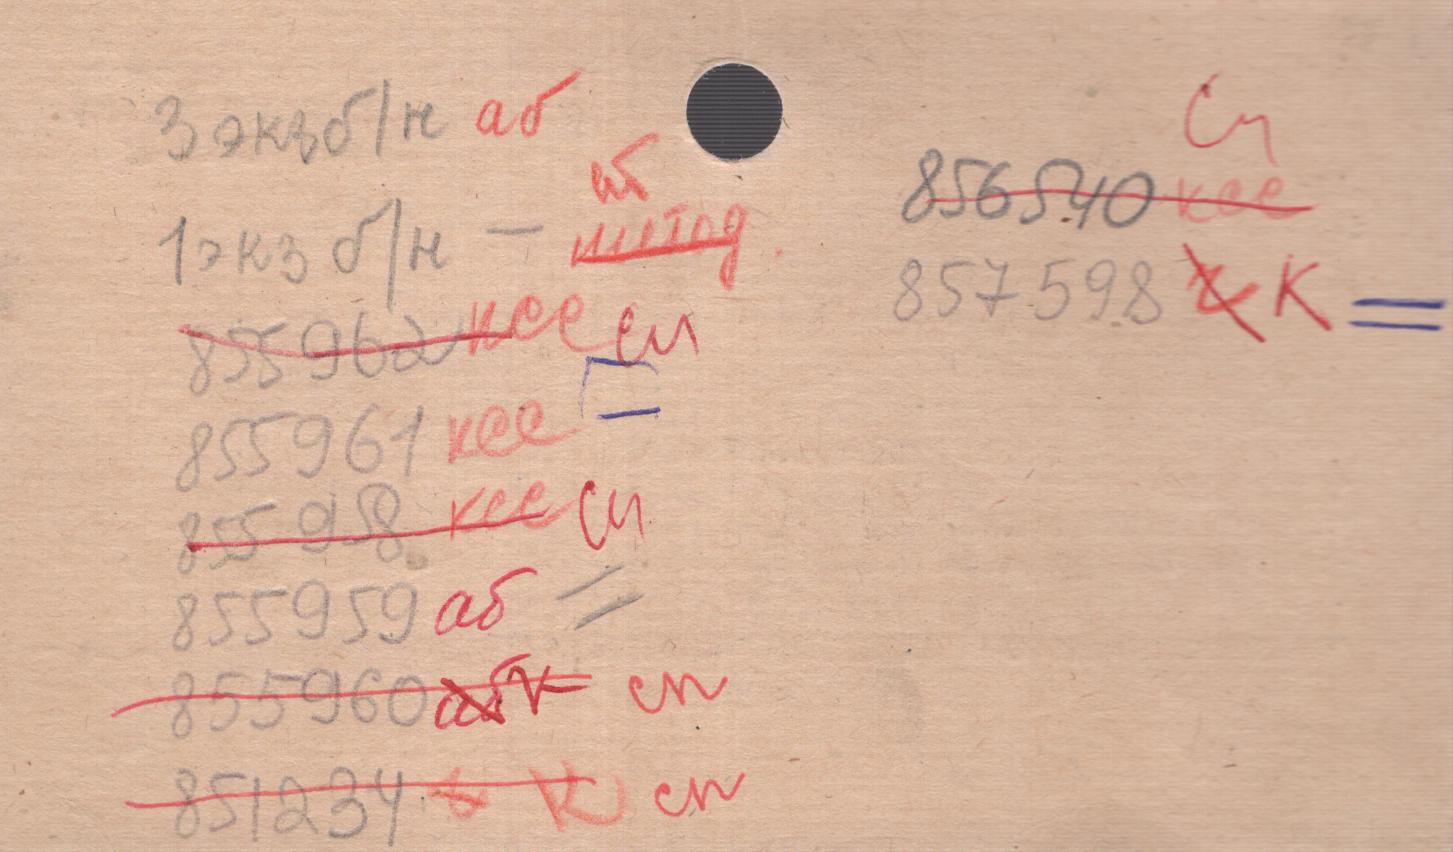 3 экз б/н аб
1 экз б/н — метод.
855962 ксе сп
855961 ксе
855958 ксе сп
855959 аб
855960 аб к сп
851234 к сп
сп
856540 ксе
857598 К